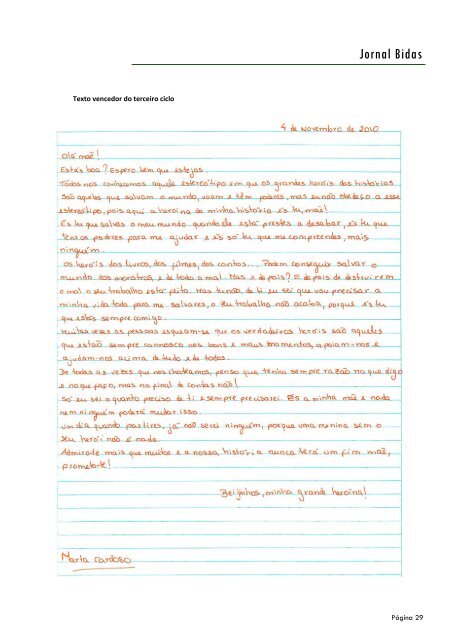 Jornal Bidas
Texto vencedor do terceiro ciclo
4 de Novembro de 2010
Olá mãe!
Estás boa? Espero bem que estejas.
Todos nós conhecemos aquele estereótipo em que os grandes heróis das histórias
são aqueles que salvam o mundo, voam e têm poderes, mas eu não obedeço a esse
estereótipo, pois aqui a heroína da minha história és tu, mãe!
És tu que salvas o meu mundo quando ele está prestes a desabar, és tu que
tens os poderes para me ajudar e és só tu que me compreendes, mais
ninguém.
Os heróis dos livros, dos filmes, dos contos... Podem conseguir salvar o
mundo dos monstros e de todo o mal. Mas e depois? E depois de destruirem
o mal o seu trabalho está feito. Mas tu não, de ti eu sei que vou precisar a
minha vida toda para me salvares, o teu trabalho não acaba, porque és tu
que estás sempre comigo.
Muitas vezes as pessoas esquecem-se que os verdadeiros heróis são aqueles
que estão sempre connosco nos bons e maus momentos, apoiam-nos e
ajudam-nos acima de tudo e de todos.
De todas as vezes que nos chateamos, penso que tenho sempre razão no que digo
e no que faço, mas no final de contas não!
Só eu sei o quanto preciso de ti e sempre precisarei. És a minha mãe e nada
nem ninguém poderá mudar isso.
Um dia quando partires, já não serei ninguém, porque uma menina sem o
seu herói não é nada.
Admiro-te mais que muito e a nossa história nunca terá um fim mãe,
prometo-te!
Beijinhos, minha grande heroína!
Marta Cardoso
Página 29